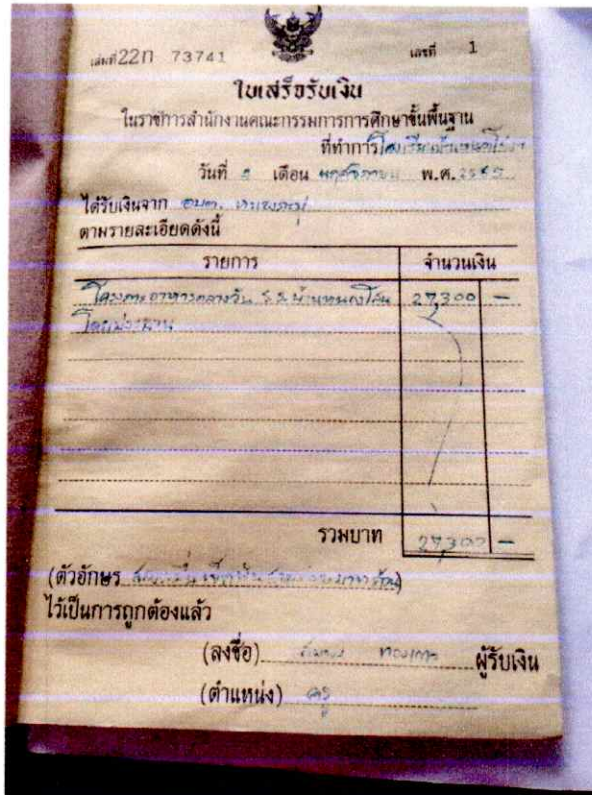 เล่มที่ 22ก 73741 เลขที่ 1
ใบเสร็จรับเงิน
ในราชการสำนักงานคณะกรรมการการศึกษาขั้นพื้นฐาน
ที่ทำการ
วันที่ เดือน พฤศจิกายน พ.ศ. 2565
ได้รับเงินจาก อบต.
ตามรายละเอียดดังนี้
รายการ จำนวนเงิน
โครงการอาหารกลางวัน ร.ร.บ้านหนองโสน 27,300 -
รวมบาท 27,300 -
(ตัวอักษร สองหมื่นเจ็ดพันสามร้อยบาทถ้วน)
ไว้เป็นการถูกต้องแล้ว
(ลงชื่อ) ผู้รับเงิน
(ตำแหน่ง) ครู